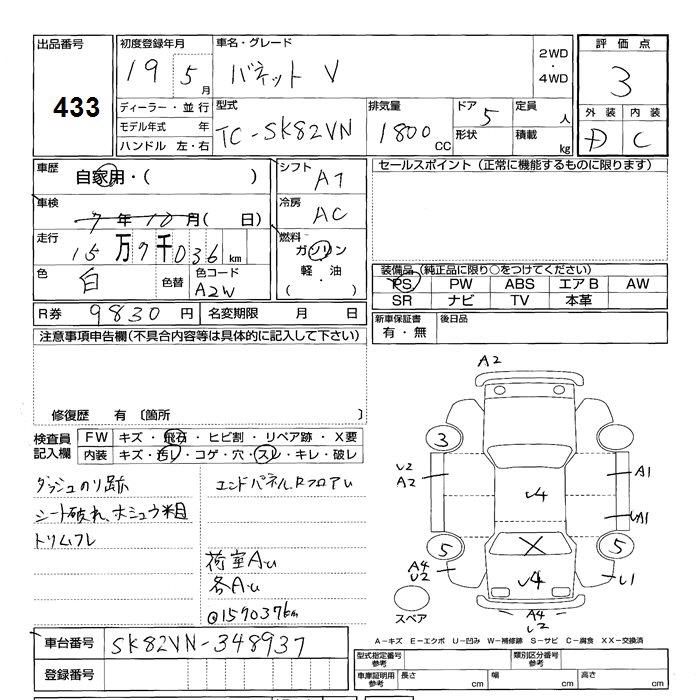 出品番号 初度登録年月 車名・グレード 2WD・4WD 評価点
433 19 5月 バネット V 3
ディーラー・並行 型式 排気量 ドア 5 定員 人 外装 内装
モデル年式 年 TC-SK82VN 1800CC 形状 積載 kg D C
ハンドル 左・右
車歴 自家用・( ) シフト AT セールスポイント(正常に機能するものに限ります)
車検 7年10月( 日) 冷房 AC
走行 15万9千036km 燃料 ガソリン
色 白 色替 色コード A2W 軽・油 ・( )
装備品(純正品に限り○をつけてください)
PS PW ABS エアB AW
SR ナビ TV 本革
R券 9830円 名変期限 月 日
新車保証書 有・無 後日品
注意事項申告欄(不具合内容等は具体的に記入して下さい)
修復歴 有〔箇所
検査員記入欄 FW キズ・飛石・ヒビ割・リペア跡・X要
内装 キズ・汚レ・コゲ・穴・スレ・キレ・破レ
ダッシュのり跡 エンドパネル.Rフロアu
シート破れ、ホシュウ
トリムフレ
荷室Au
各Au
@159037km
A2
3
U2
A2
A1
U4
UA1
5
5
A4
U2
U4
U1
A4
U2
スペア
A-キズ E-エクボ U-凹み W-補修跡 S-サビ C-腐食 XX-交換済
車台番号 SK82VN-348937
登録番号
型式指定番号 参考 類別区分番号 参考
車庫証明用 参考 長さ cm 幅 cm 高さ cm